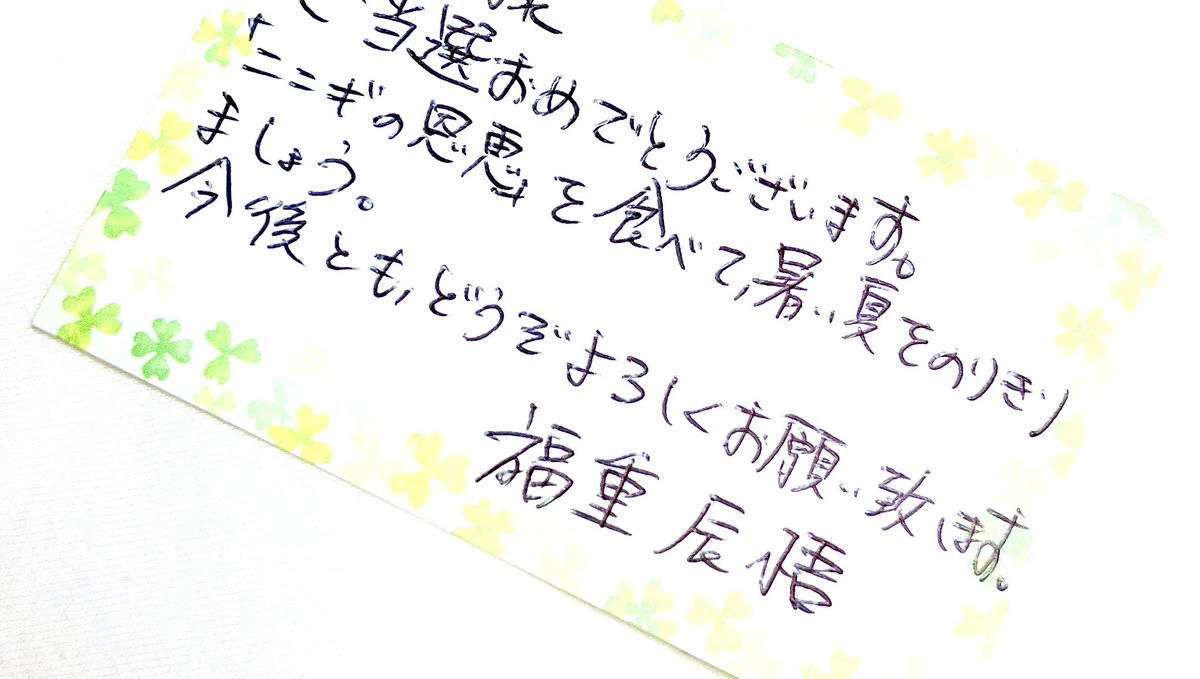 ご当選おめでとうございます。
「ニニギの恩恵」を食べて、暑い夏をのりきり
ましょう。
今後とも、どうぞよろしくお願い致します。
福重辰悟